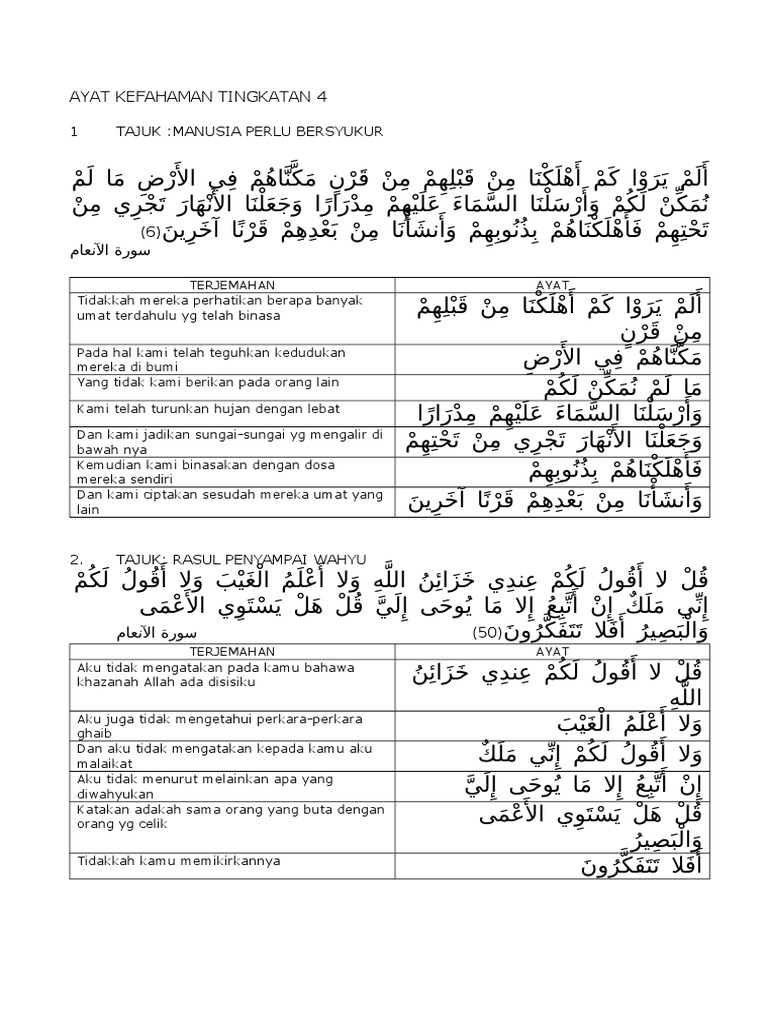 AYAT KEFAHAMAN TINGKATAN 4
1 TAJUK :MANUSIA PERLU BERSYUKUR
أَلَمْ يَرَوْا كَمْ أَهْلَكْنَا مِنْ قَبْلِهِمْ مِنْ قَرْنٍ مَكَّنَّاهُمْ فِي الأَرْضِ مَا لَمْ
نُمَكِّنْ لَكُمْ وَأَرْسَلْنَا السَّمَاءَ عَلَيْهِمْ مِدْرَارًا وَجَعَلْنَا الأَنْهَارَ تَجْرِي مِنْ
تَحْتِهِمْ فَأَهْلَكْنَاهُمْ بِذُنُوبِهِمْ وَأَنشَأْنَا مِنْ بَعْدِهِمْ قَرْنًا آخَرِينَ(6)
سورة الآنعام
TERJEMAHAN AYAT
Tidakkah mereka perhatikan berapa banyak
umat terdahulu yg telah binasa
أَلَمْ يَرَوْا كَمْ أَهْلَكْنَا مِنْ قَبْلِهِمْ
مِنْ قَرْنٍ
Pada hal kami telah teguhkan kedudukan
mereka di bumi
مَكَّنَّاهُمْ فِي الأَرْضِ
Yang tidak kami berikan pada orang lain
مَا لَمْ نُمَكِّنْ لَكُمْ
Kami telah turunkan hujan dengan lebat
وَأَرْسَلْنَا السَّمَاءَ عَلَيْهِمْ مِدْرَارًا
Dan kami jadikan sungai-sungai yg mengalir di
bawah nya
وَجَعَلْنَا الأَنْهَارَ تَجْرِي مِنْ تَحْتِهِمْ
Kemudian kami binasakan dengan dosa
mereka sendiri
فَأَهْلَكْنَاهُمْ بِذُنُوبِهِمْ
Dan kami ciptakan sesudah mereka umat yang
lain
وَأَنشَأْنَا مِنْ بَعْدِهِمْ قَرْنًا آخَرِينَ
2. TAJUK: RASUL PENYAMPAI WAHYU
قُلْ لا أَقُولُ لَكُمْ عِندِي خَزَائِنُ اللَّهِ وَلا أَعْلَمُ الْغَيْبَ وَلا أَقُولُ لَكُمْ
إِنِّي مَلَكٌ إِنْ أَتَّبِعُ إِلا مَا يُوحَى إِلَيَّ قُلْ هَلْ يَسْتَوِي الأَعْمَى
وَالْبَصِيرُ أَفَلا تَتَفَكَّرُونَ(50) سورة الآنعام
TERJEMAHAN AYAT
Aku tidak mengatakan pada kamu bahawa
khazanah Allah ada disisiku
قُلْ لا أَقُولُ لَكُمْ عِندِي خَزَائِنُ
اللَّهِ
Aku juga tidak mengetahui perkara-perkara
ghaib
وَلا أَعْلَمُ الْغَيْبَ
Dan aku tidak mengatakan kepada kamu aku
malaikat
وَلا أَقُولُ لَكُمْ إِنِّي مَلَكٌ
Aku tidak menurut melainkan apa yang
diwahyukan
إِنْ أَتَّبِعُ إِلا مَا يُوحَى إِلَيَّ
Katakan adakah sama orang yang buta dengan
orang yg celik
قُلْ هَلْ يَسْتَوِي الأَعْمَى
وَالْبَصِيرُ
Tidakkah kamu memikirkannya
أَفَلا تَتَفَكَّرُونَ